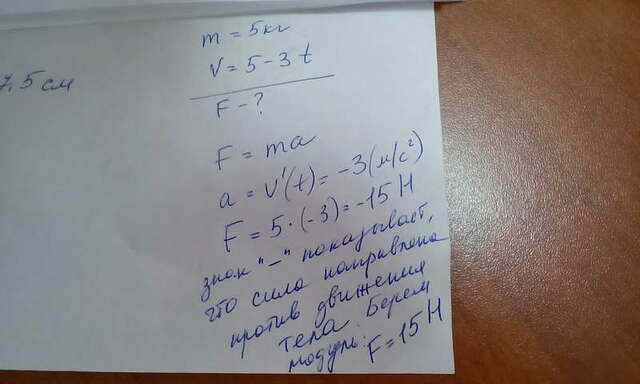 7,5 см
m = 5кг
V = 5 - 3 t
F - ?
F = ma
a = V'(t) = -3 (м/с²)
F = 5 · (-3) = -15 Н
знак "-" показывает,
что сила направлена
против движения
тела. Берем
модуль: F = 15 Н